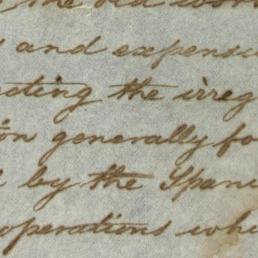 the old wor
and expensi
cting the irreg
on generally fo
by the Spani
operations whi